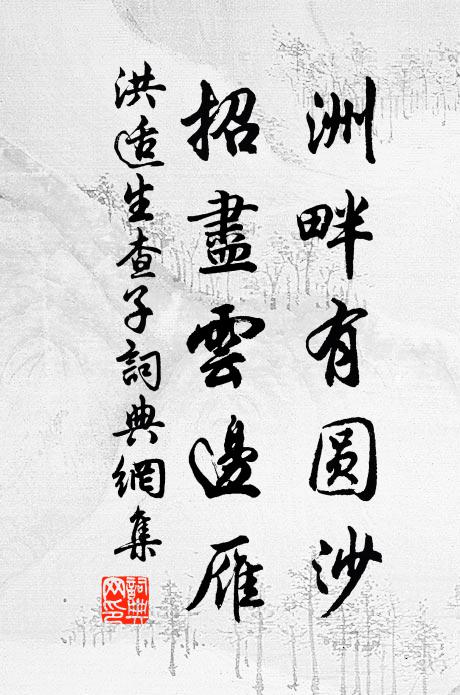 洲畔有圆沙
招盡雲邊雁
洪适生查子詞典網集
詞典网印